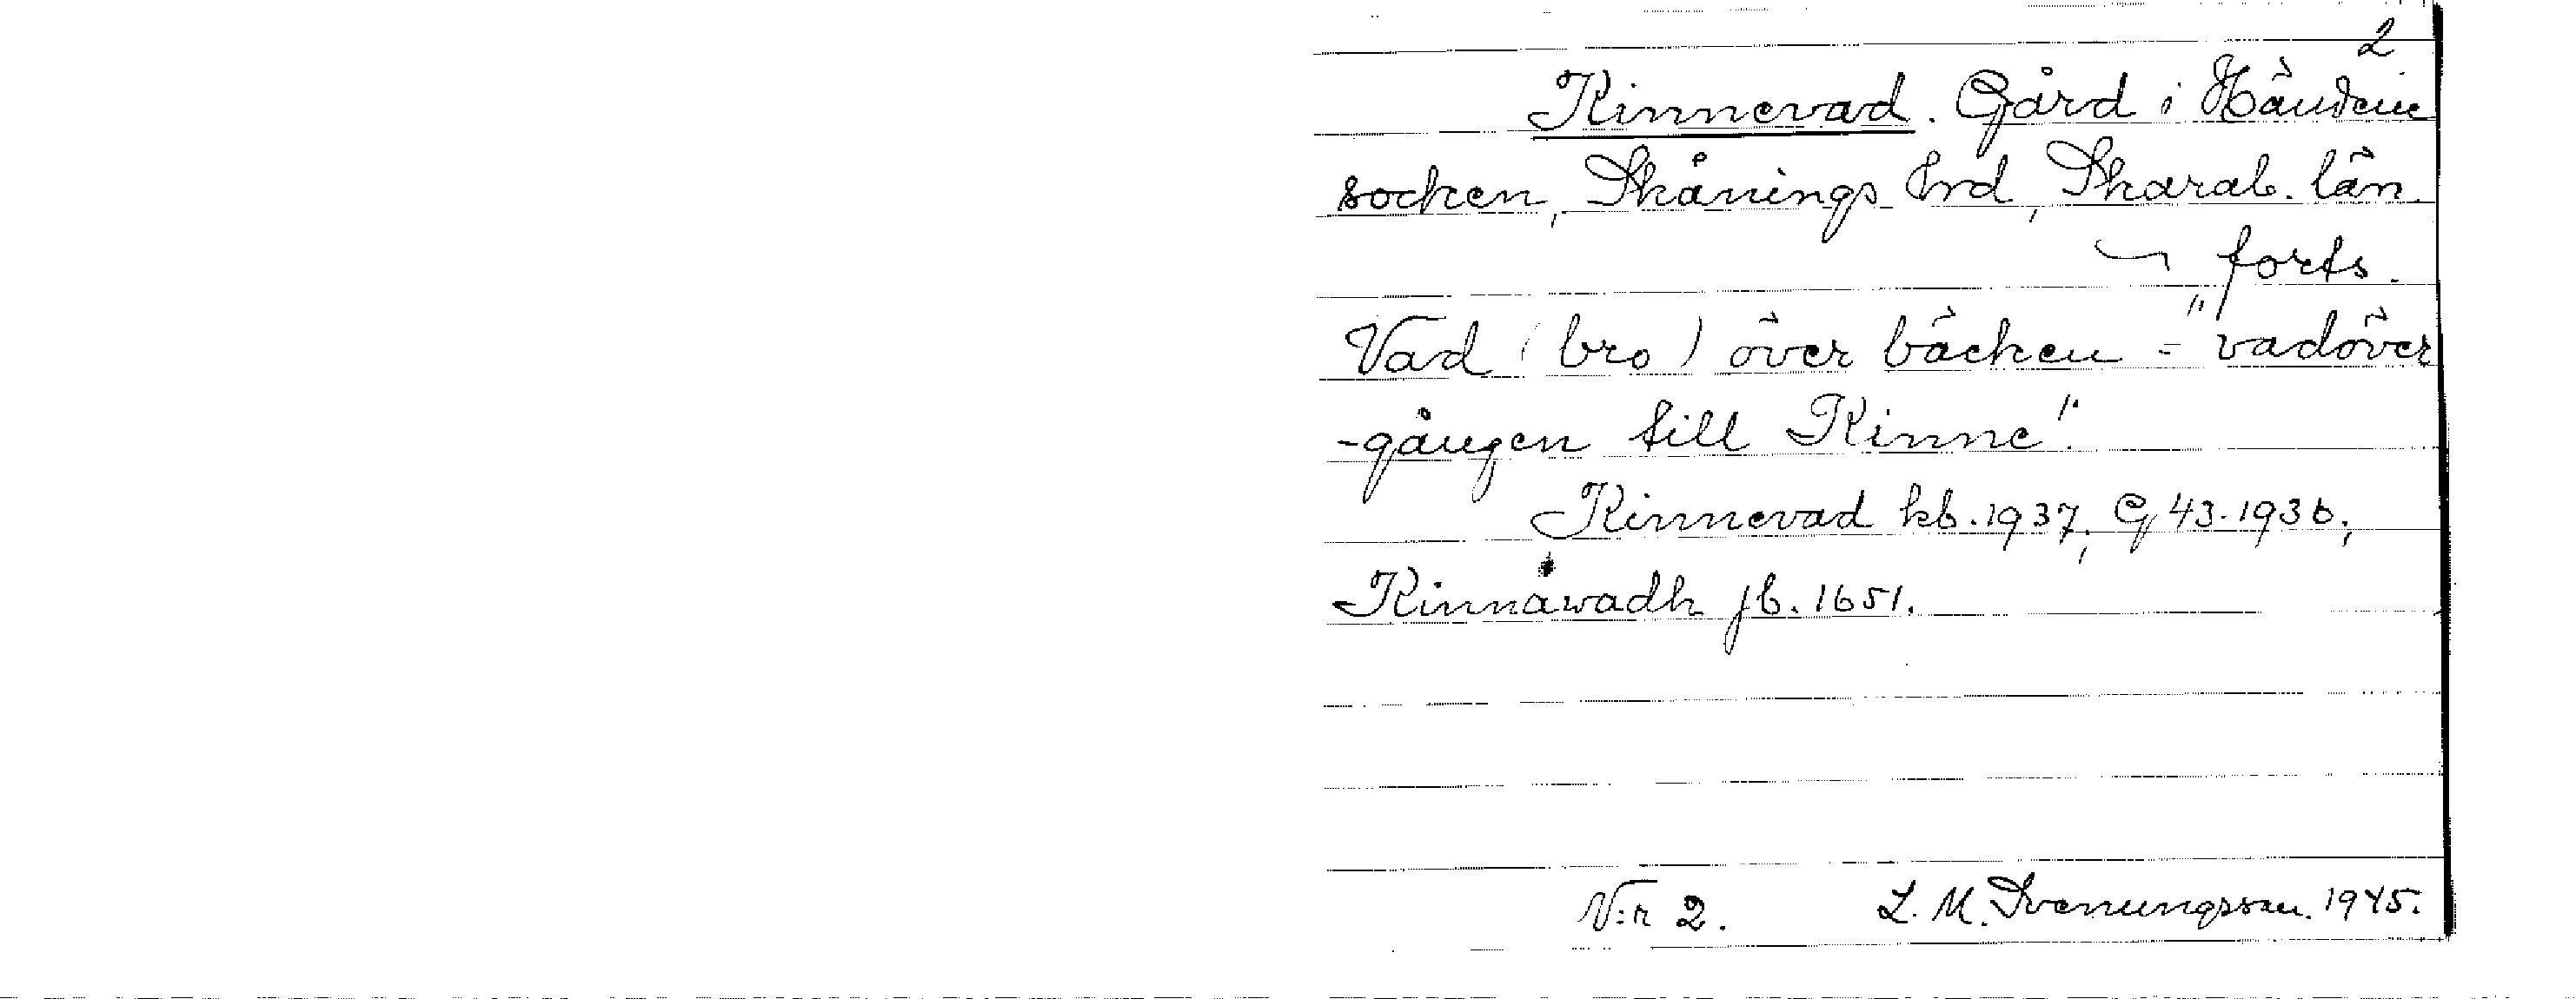 2
Kinnevad. Gård i Händene
socken, Skånings hrd, Skarab. län.
forts.
Vad (bro) över bäcken = "vadöver
-gången till Kinne".
Kinnevad kb. 1937; G 43. 1936,
Kinnåwadh jb. 1651.
N:r 2. L. M. Svenungsson. 1945.